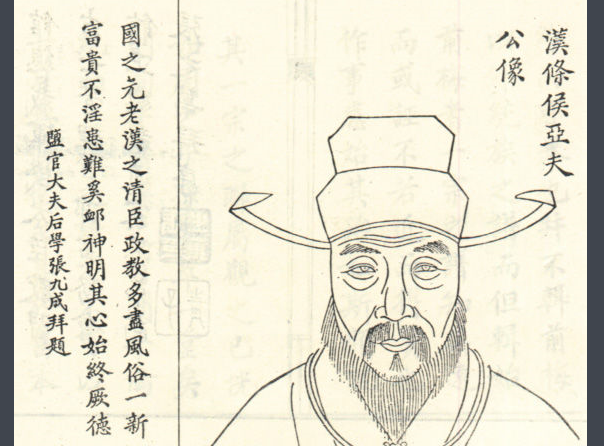 漢條侯亞夫
公像
國之元老漢之清臣政教多盡風俗一新
富貴不淫患難奚卹神明其心始終厥德
鹽官大夫后學張九成拜題